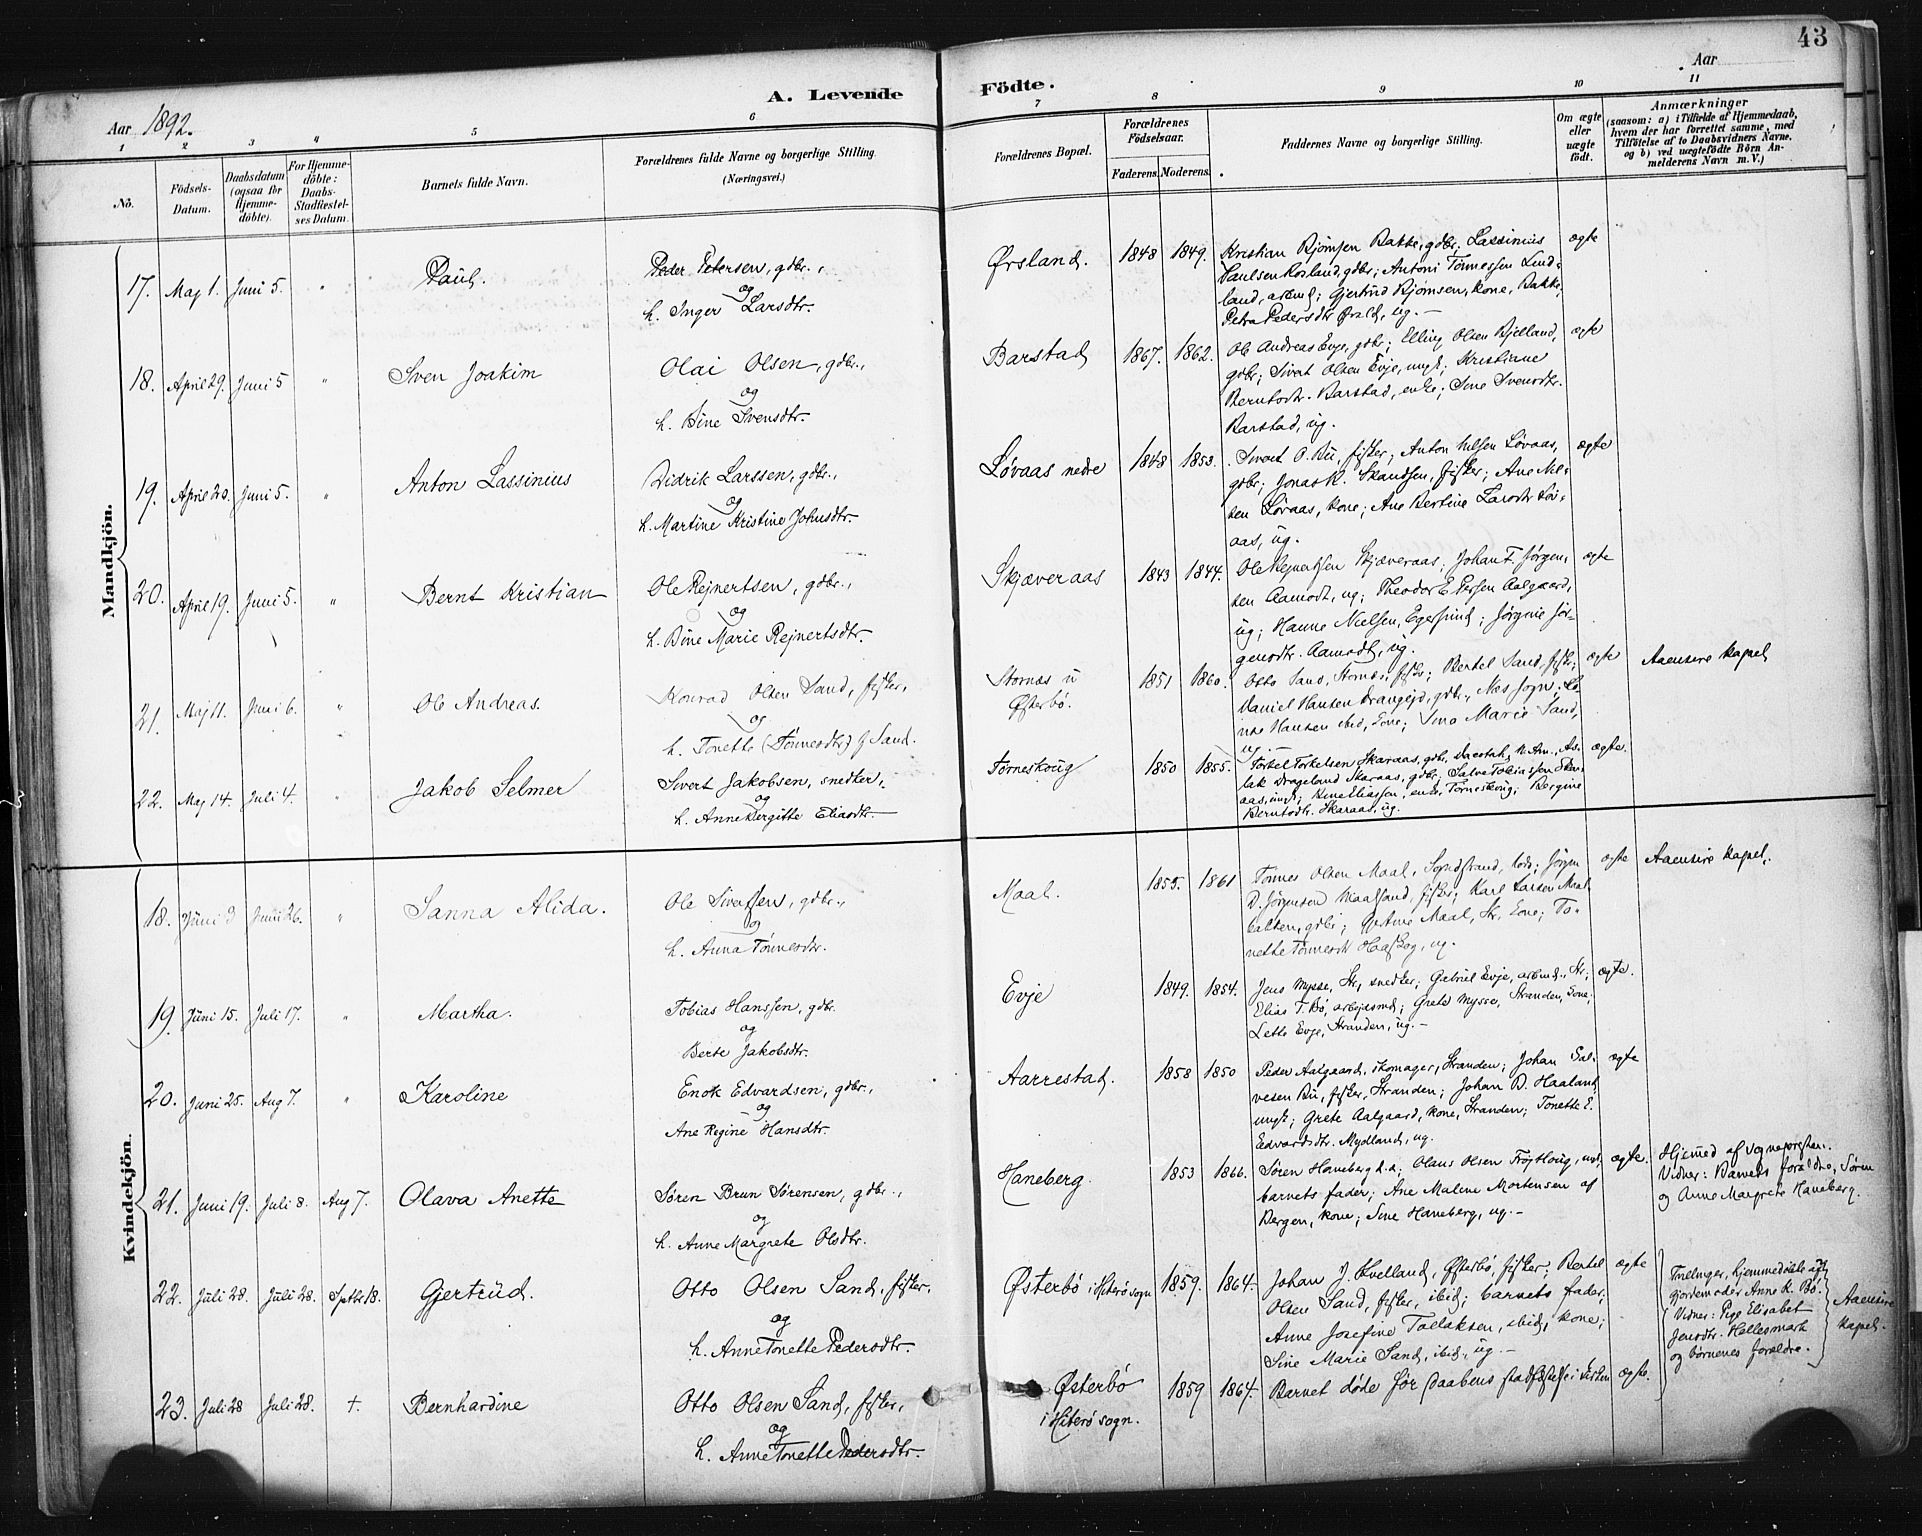 43
Aar 1892.
A. Levende Födte.
Aar
1 2 3 " 5 6 7 8 9 10 11
Nö.
Födsels-Datum.
Daabsdatum (ogsaa för Hjemme-döbte).
For Hjemme-döbte: Daabs-Stadfæstel-ses Datum.
Barnets fulde Navn.
Forældrenes fulde Navne og borgerlige Stilling. (Næringsvei.)
Forældrenes Bopæl.
Forældrenes Födselsaar.
Faderens. Moderens.
Faddernes Navne og borgerlige Stilling.
Om ægte eller uægte födt.
Anmærkninger
(saasom: a) i Tilfælde af Hjemmedaab,
hvem der har forrettet samme, med
Tilföielse af to Daabsvidners Navne.
og b) ved uægtefödte Börn An-
melderens Navn m. V.)
Mandkjön.
17. Maj 1. Juni 5. " Paul. Peder Petersen, gdbr.,
og
h. Inger Larsdtr.
Ørsland. 1848 1849.
Kristian Bjørnsen Bakke, gdbr; Lassinius
Paulsen Rosland, gdbr; Antoni Tönnessen Lind-
land, arbmd; Gjertrud Bjørnsen, kone, Bakke,
Petra Pedersdtr Ørsld, ug. —
ægte
18. April 29. Juni 5 " Sven Joakim Olai Olsen, gdbr.,
og
h. Bine Svensdtr.
Barstad 1867. 1862.
Ole Andreas Evje, gdbr; Elling Olsen Bjelland,
gdbr; Sivert Olsen Evje, ungk; Kristiane
Berntsdtr. Barstad, enke; Sine Svensdtr.
Barstad, ug.
ægte
19. April 20. Juni 5. " Anton Lassinius Didrik Larssen, gdbr.,
og
h. Martine Kristine Johnsdtr.
Løvaas nedre 1848 1853.
Sivert O. Bu, fisker; Anton Nilsen Løvaas,
gdbr; Jonas K. Skandsen, fisker; Ane Nil-
sen Løvaas, kone; Ane Bertine Larsdtr Løv-
aas, ug.
ægte
20. April 19. Juni 5. " Bernt Kristian Ole Rejnertsen, gdbr.,
og
h. Bine Marie Rejnertsdtr.
Skjæveraas 1843 1844.
Ole Rejnertsen Skjæveraas; Johan F. Jörgen-
sen Aamodt, ug; Theodor Petersen Aalgaard,
ug; Hanne Nielsen, Egersund; Jørgine Jör-
gensdtr. Aamodt, ug.
ægte
21. Maj 11. Juni 6. " Ole Andreas. Konrad Olsen Sand, fisker,
og
h. Tonette (Tönnesdtr) f Sand.
Stornæs u
Østerbö. 1851 1860.
Otto Sand, Stornæs, fisker; Bertel Sand, fisker;
Daniel Hansen Drangejd, gdbr., Næs sogn;
Hansen ibid, kone; Sine Marie Sand,
ug. —
ægte
Aaensire kapel
22. Maj 14. Juli 4. " Jakob Selmer Sivert Jakobsen, snedker,
og
h. Anne Bergitte Eliasdtr.
Torneskoug 1850 1855.
Torkel Torkelsen Skaraas, gdbr, As-
lak Drageland Skaraas, gdbr; Salve Tobiassen Skar-
aas, ungk; Eliassen, enke, Torneskoug; Bergine
Berntsdtr. Skaraas, ug.
ægte.
Kvindekjön.
18. Juni 3 Juni 26. " Sanna Alida. Ole Sivertsen, gdbr.,
og
h. Anna Tönnesdtr.
Maal. 1855. 1861
Tönnes Olsen Maal, Sogndstrand, lods; Jörgen
D. Jörgensen Maalsand, fisker; Karl Larsen Maal
gdbr; Maal, Str, kone; To-
nette Tönnesdtr Hafskog, ug.
ægte
Aaensire kapel.
19. Juni 15. Juli 17. " Martha. Tobias Hanssen, gdbr.
og
Berte Jakobsdtr.
Evje 1849. 1854.
Jens Mysse, Str, snedker; Gabriel Evje, arbmd., Str;
Elias T. Bö, arbejdsmd; Grete Mysse, Stranden, kone;
Lette Evje, Stranden, ug. —
ægte.
20. Juni 25. Aug 7. " Karoline Enok Edvardsen, gdbr.,
og
Ane Regine Hansdtr.
Aarrestad. 1858 1850
Peder Aalgaard, skomager, Stranden; Johan Sal-
vesen Bu, fisker, Stranden; Johan D. Haaland,
ungk; Grete Aalgaard, kone, Stranden; Tonette E.
Edvardsdtr. Mydland, ug.
ægte
21. Juni 19. Juli 8. Aug 7. Olava Anette Søren Brun Sørensen, gdbr.,
og
h. Anne Margrete Olsdtr.
Haneberg. 1853 1866.
Søren Haneberg d.æ; Olaus Olsen Frøjthoug, ungk;
barnets fader; Ane Malene Mortensen af
Bergen, kone; Sine Haneberg, ug. —
ægte.
Hjemmed af sognepresten.
Vidner: Barnets forældre, Sören
og Anne Margrete Haneberg.
22. Juli 28. Juli 28. Septbr 18. Gjertrud. Otto Olsen Sand, fisker,
og
h. Anne Tonette Pedersdtr.
Østerbö i Hiterö sogn 1859. 1864.
Johan J. Kvelland, Østerbö, fisker; Bertel
Olsen Sand, fisker, ibid; barnets fader;
Anne Josefine Tollaksen, ibid, kone;
Sine Marie Sand, ibid., ug. —
ægte
Tvillinger, hjemmedöbte af
gjordemoder Anne K. Bö.
Vidner: Pige Elisabet
Jensdtr. Hellesmark
og börnenes forældre.
Aaensire
kapel.
23. Juli 28 Juli 28. +. Bernhardine Otto Olsen Sand, fisker,
og
h. Anne Tonette Pedersdtr.
Østerbö
i Hiterö sogn. 1859 1864.
Barnet döde för daabens stadfæstelse i kirken
ægte.